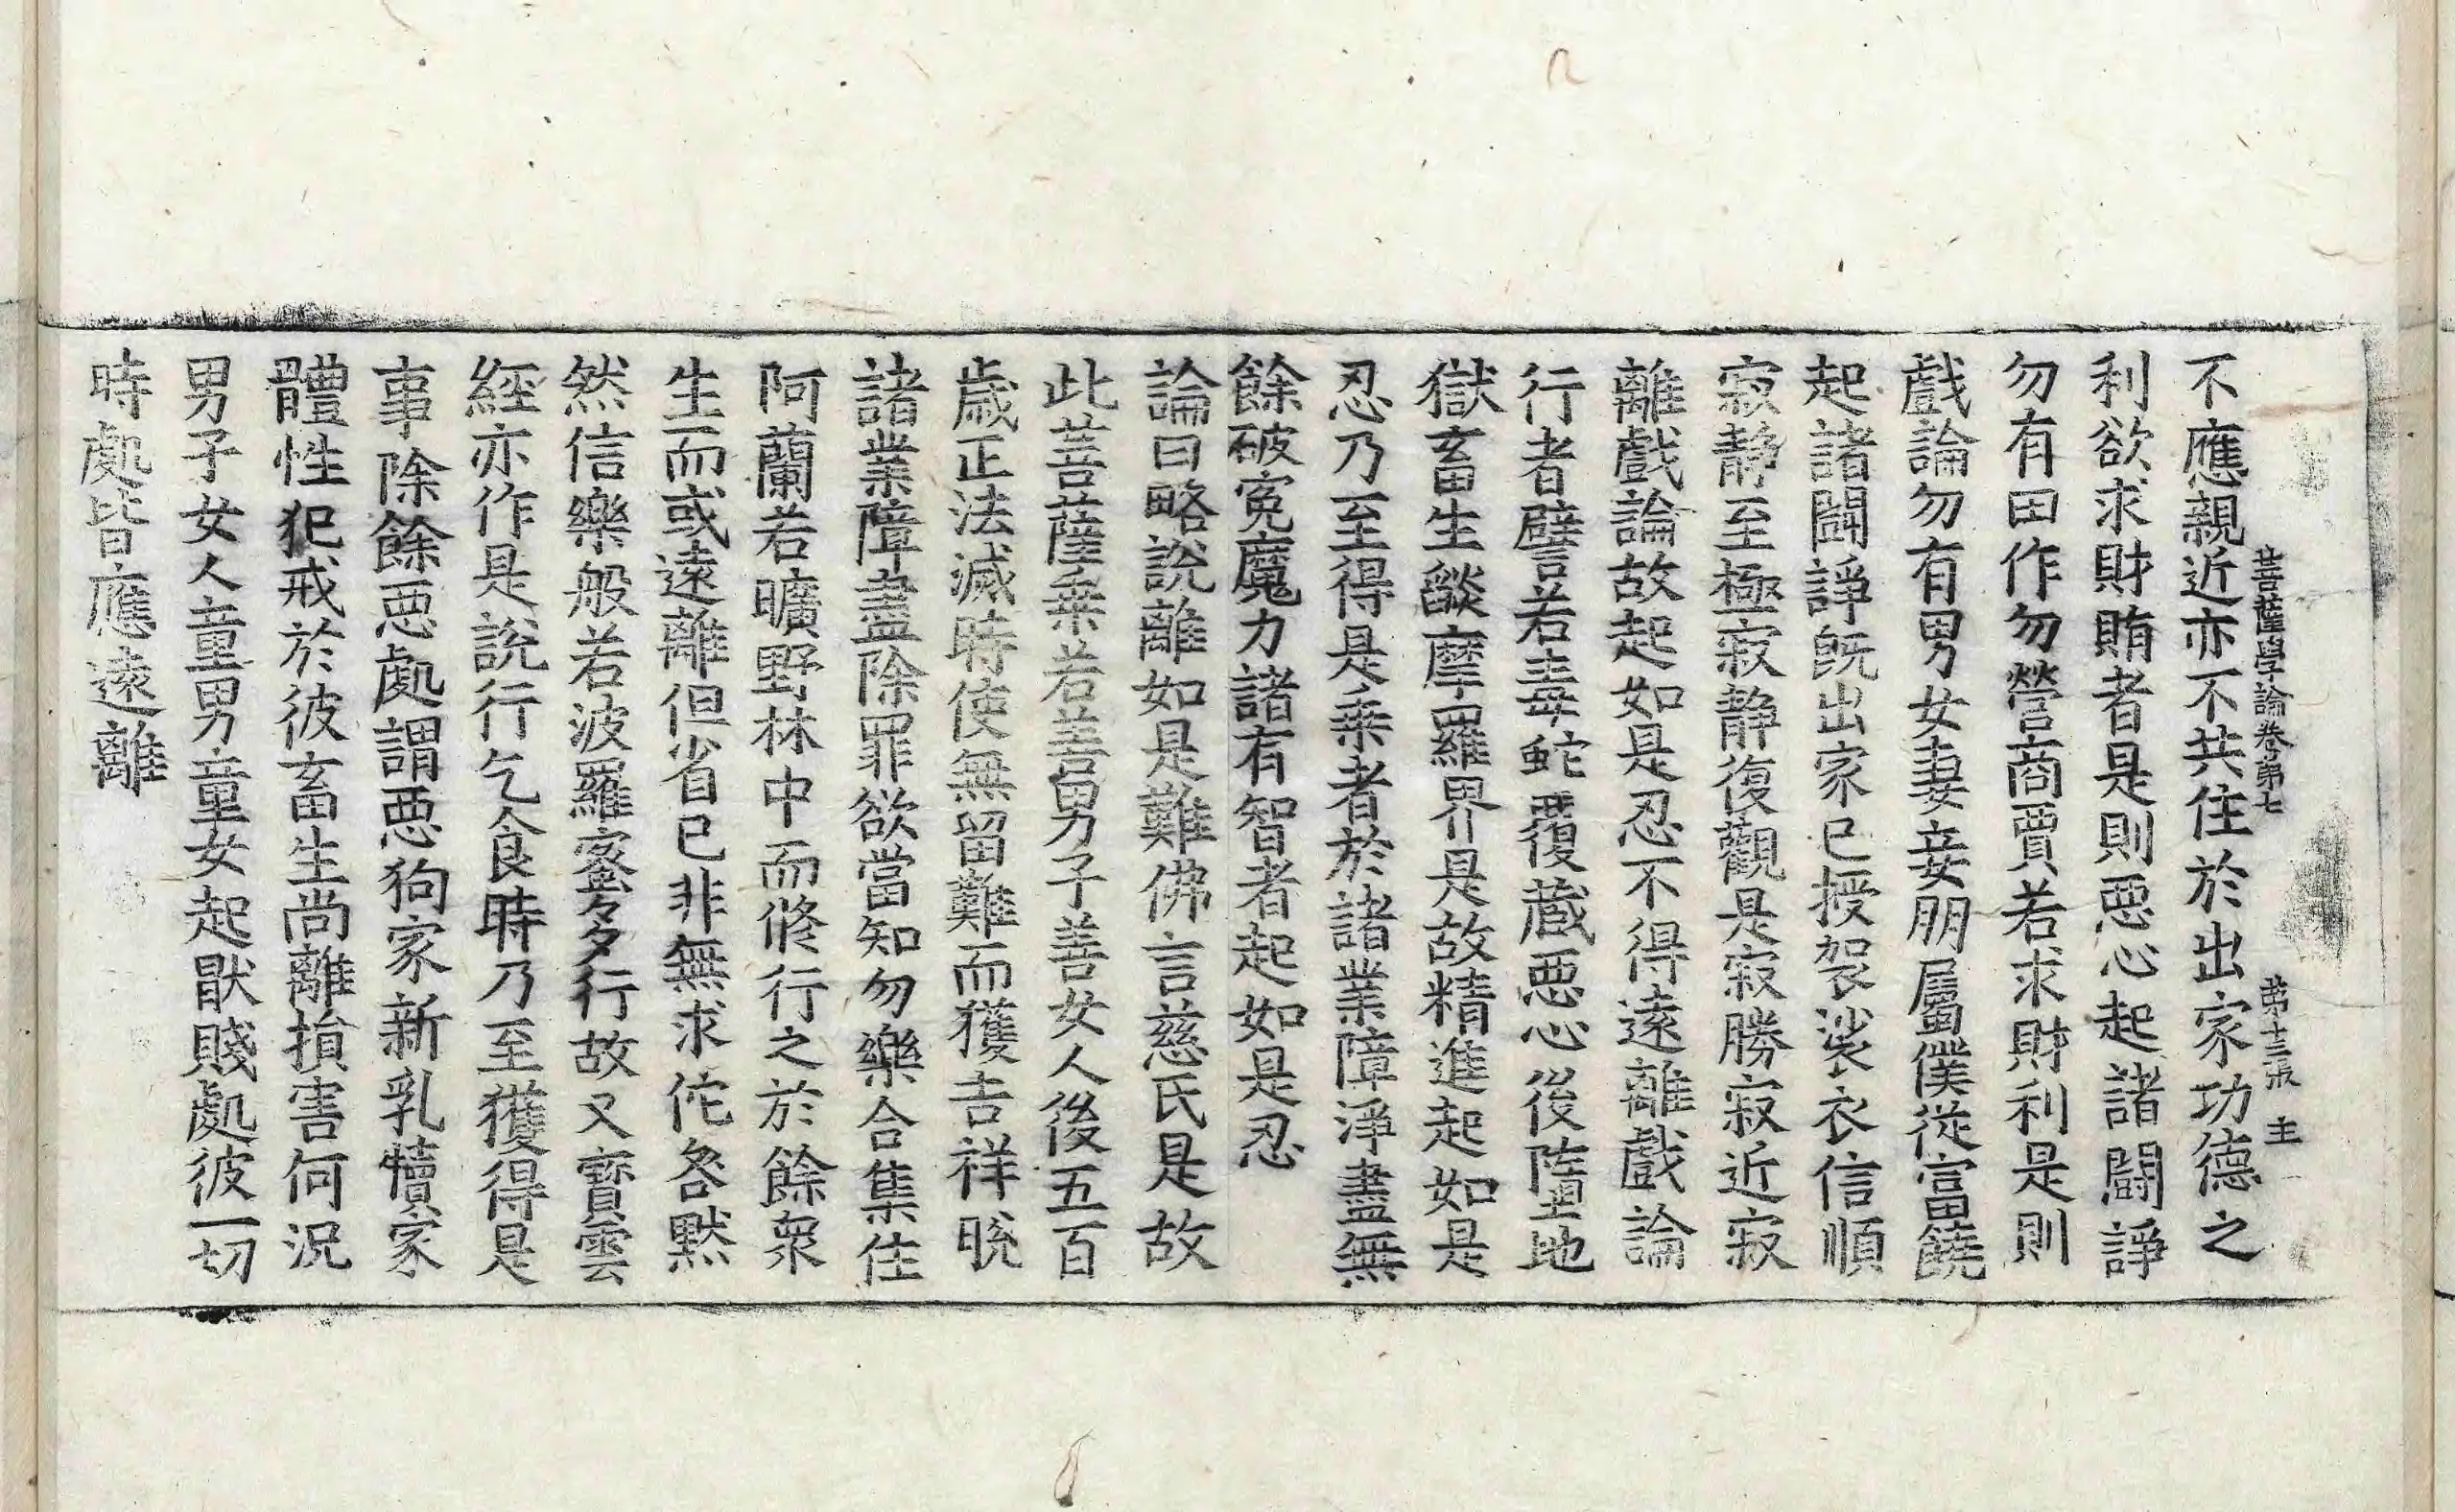 菩薩學論卷第七　第十三張　主
不應親近亦不共住於出家功德之
利欲求財賄者是則惡心起諸鬪諍
勿有田作勿營商賈若求財利是則
戲論勿有男女妻妾朋屬僕從富饒
起諸鬪諍旣出家已授袈裟衣信順
寂靜至極寂靜復觀是寂勝寂近寂
離戲論故起如是忍不得遠離戲論
行者譬若毒蛇覆藏惡心後墮地
獄畜生燄摩羅界是故精進起如是
忍乃至得是乘者於諸業障淨盡無
餘破寃魔力諸有智者起如是忍
論曰略說離如是難佛言慈氏是故
此菩薩乘若善男子善女人後五百
歲正法滅時使無留難而獲吉祥晚
諸業障盡除罪欲當知勿樂合集住
阿蘭若曠野林中而修行之於餘衆
生而或遠離但省己非無求佗咎默
然信樂般若波羅蜜多行故又寶雲
經亦作是說行乞食時乃至獲得是
事除餘惡處謂惡狗家新乳犢家
體性犯戒於彼畜生尚離損害何況
男子女人童男童女起猒賤處彼一切
時處皆應遠離